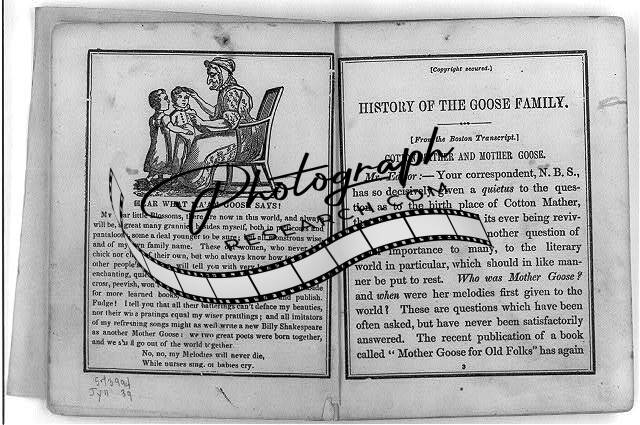 HEAR WHAT MA'AM GOOSE SAYS!
My dear little Blossoms, there are now in this world, and always
will be, a great many grannies besides myself, both in petticoats and
pantaloons, some a deal younger to be sure; but all monstrous wise
and of my own family name. These old women, who never had
chick nor child of their own, but who always know how to
other people's will tell you with very
enchanting, quie
cross, peevish, won
for more learned books, publish.
Fudge! I tell you that all their batterings can't deface my beauties,
nor their wise pratings equal my wiser prattlings; and all imitators
of my refreshing songs might as well write a new Billy Shakespeare
as another Mother Goose: we two great poets were born together,
and we shall go out of the world together.
No, no, my Melodies will never die,
While nurses sing, or babies cry.
[Copyright secured.]
HISTORY OF THE GOOSE FAMILY.
[From the Boston Transcript.]
COTTON MATHER AND MOTHER GOOSE.
Mr. Editor:— Your correspondent, N. B. S.,
has so decisively given a quietus to the ques-
tion as to the birth place of Cotton Mather,
its ever being reviv-
another question of
importance to many, to the literary
world in particular, which should in like man-
ner be put to rest. Who was Mother Goose?
and when were her melodies first given to the
world? These are questions which have been
often asked, but have never been satisfactorily
answered. The recent publication of a book
called "Mother Goose for Old Folks" has again
3
Photograph
RESEARCH.COM